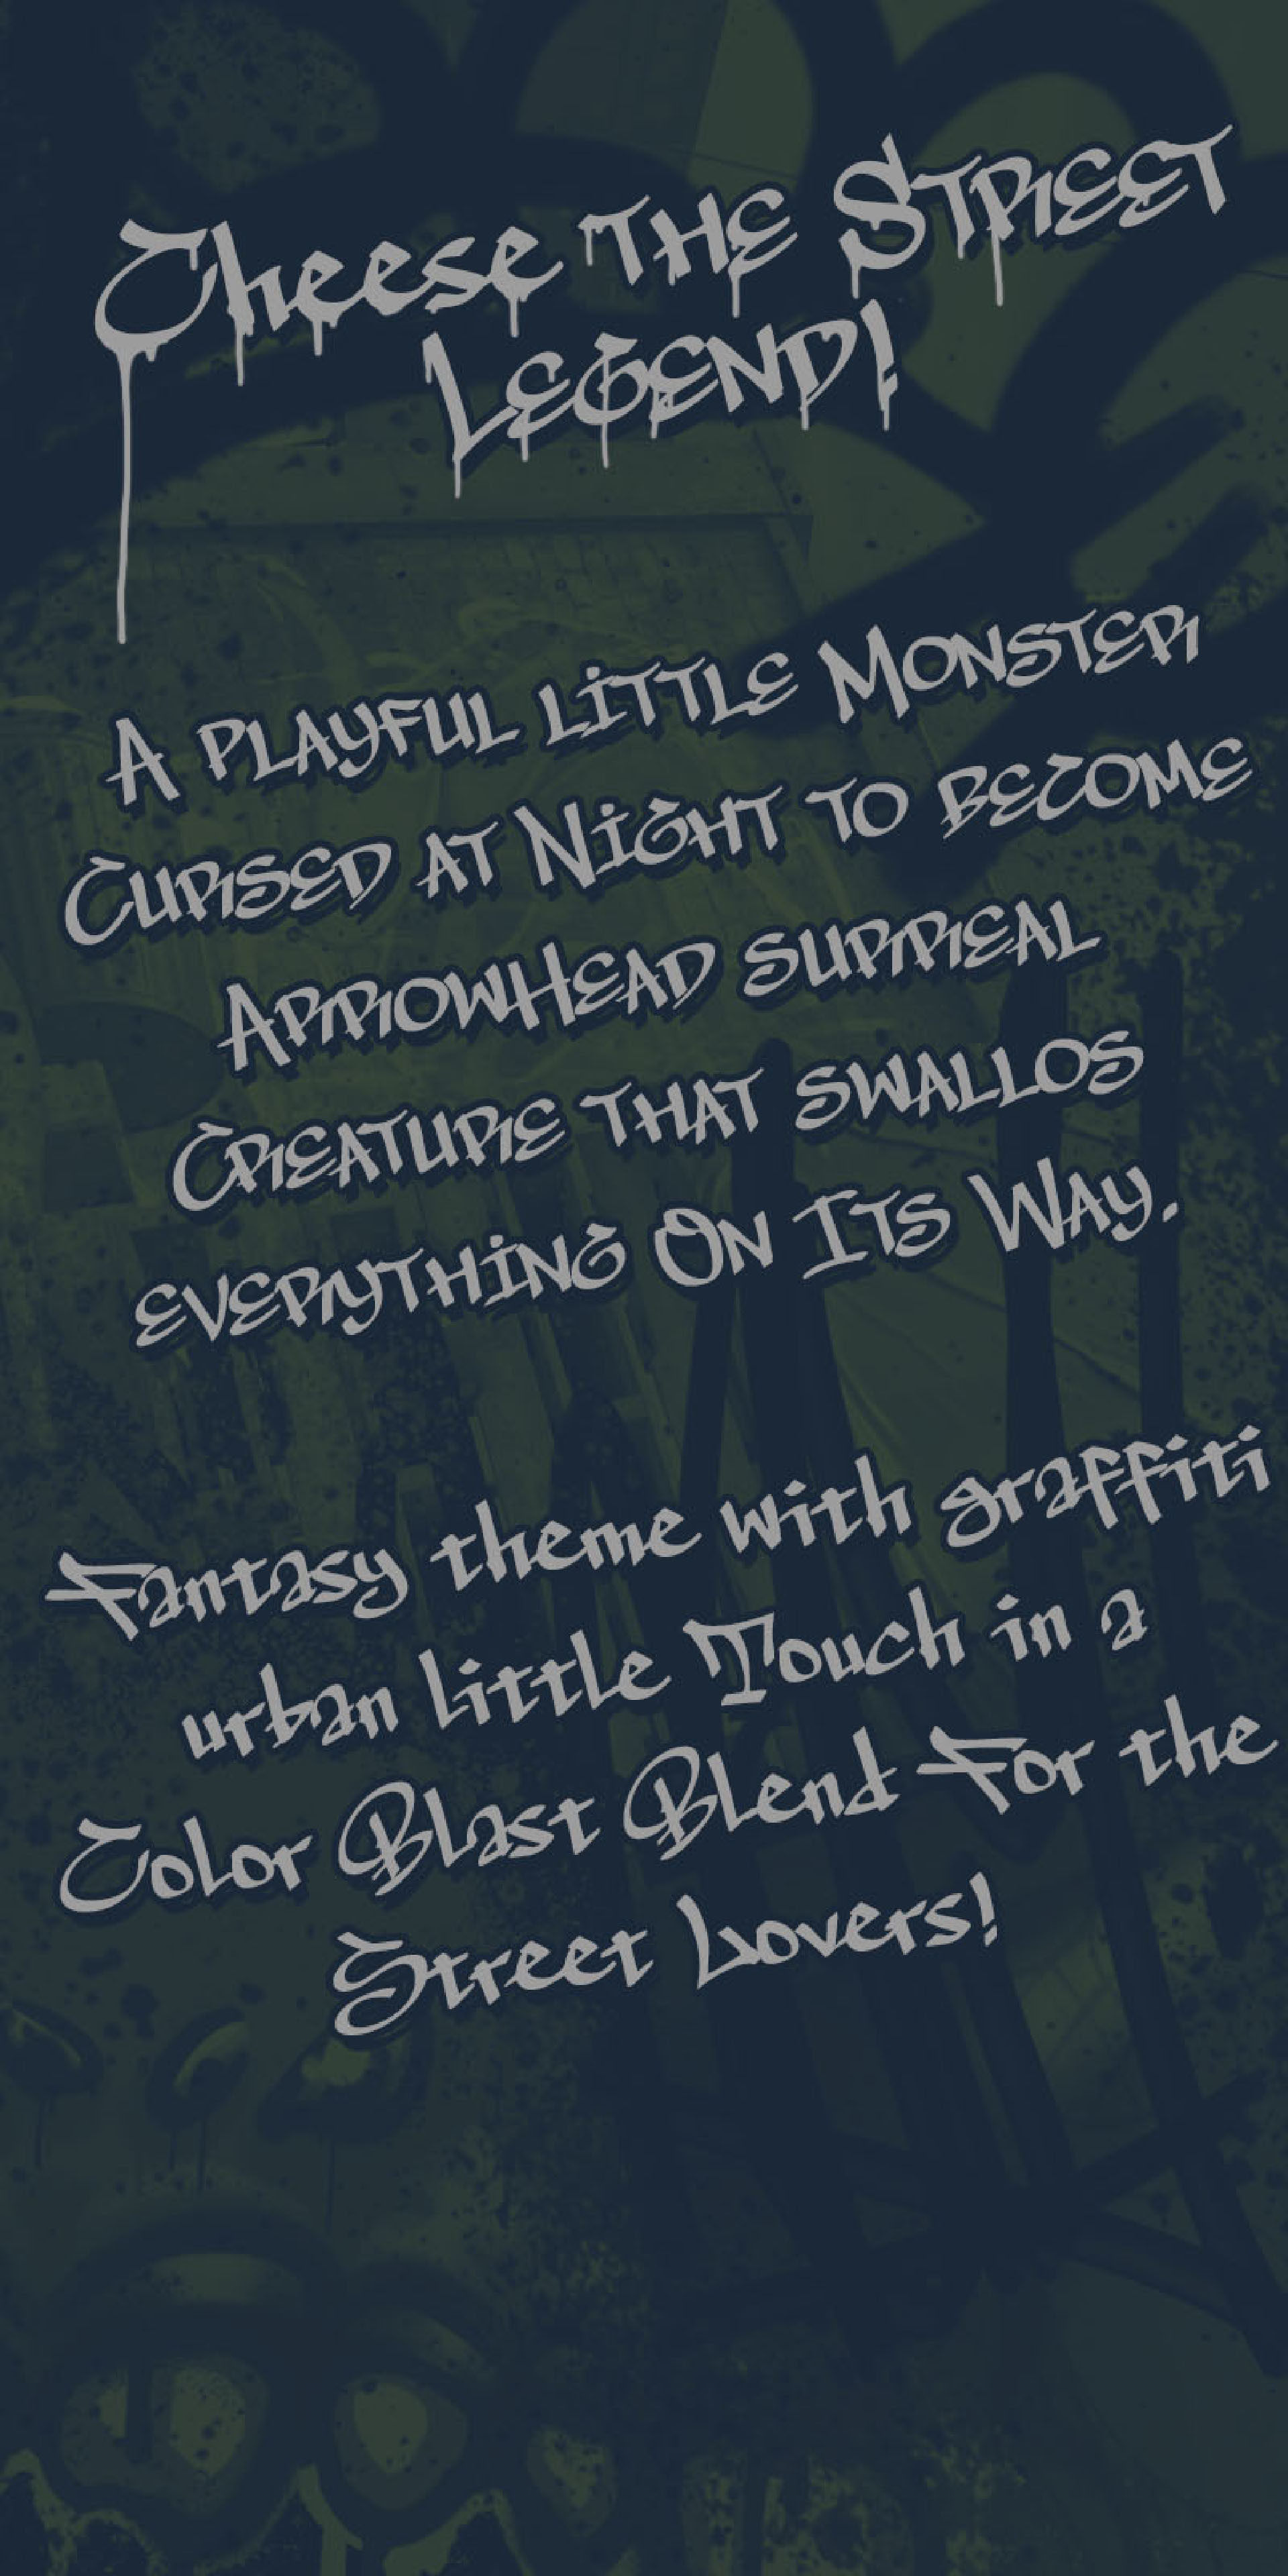 Cheese the Street
Legend!
A playful little Monster
Cursed at Night to become
ArrowHead surreal
Creature that swallos
everything On Its Way.
Fantasy theme with graffiti
urban little Touch in a
Color Blast Blend For the
Street Lovers!